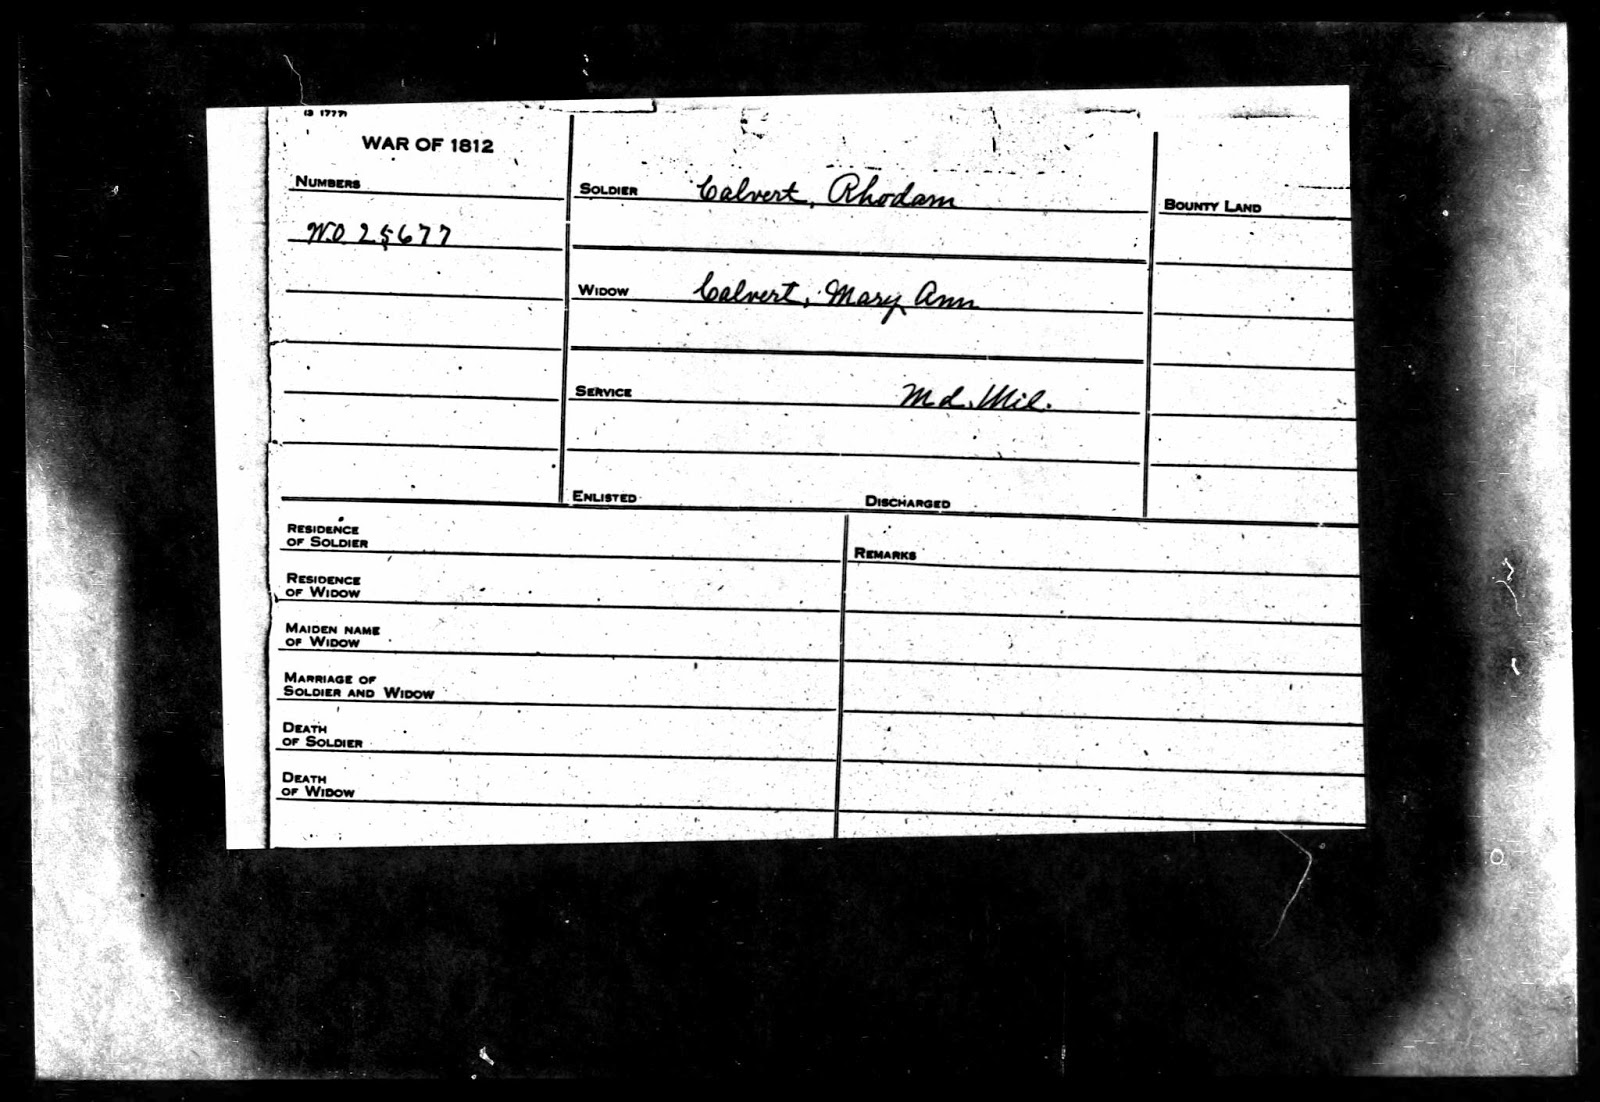 WAR OF 1812
NUMBERS
WO 25677
SOLDIER Calvert, Rhodam
WIDOW Calvert, Mary Ann
SERVICE Md. Mil.
ENLISTED DISCHARGED
BOUNTY LAND
RESIDENCE
OF SOLDIER
RESIDENCE
OF WIDOW
MAIDEN NAME
OF WIDOW
MARRIAGE OF
SOLDIER AND WIDOW
DEATH
OF SOLDIER
DEATH
OF WIDOW
REMARKS